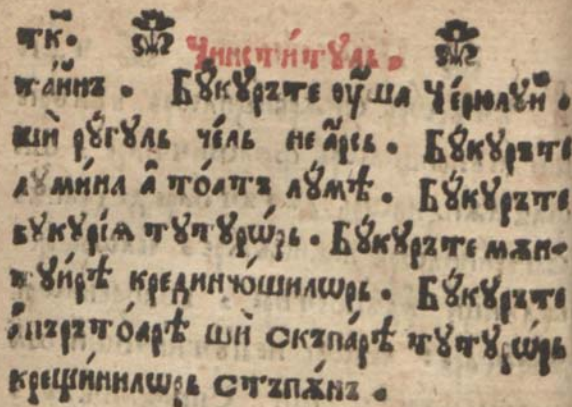 тк҃.
Чинстѝтꙋль.
та́йнъ. Бꙋ́кꙋръте ᲂу҆́ша Че́рюлꙋй.
шѝ рꙋ́гꙋль че́ль неа҆́рсь. Бꙋ́кꙋръте
лꙋми́на а҆ то́атъ лꙋ́мѣ. Бꙋ́кꙋръте
бꙋкꙋрі́ѧ тꙋтꙋрѡ́рь. Бꙋ́кꙋръте мѫн-
тꙋи́рѣ крединчо́шилѡрь. Бꙋ́кꙋръте
ꙟ҆пъръто́арѣ шѝ скъпа́рѣ тꙋтꙋрѡ́рь
крещи́нилѡрь стъпѫ́нъ.